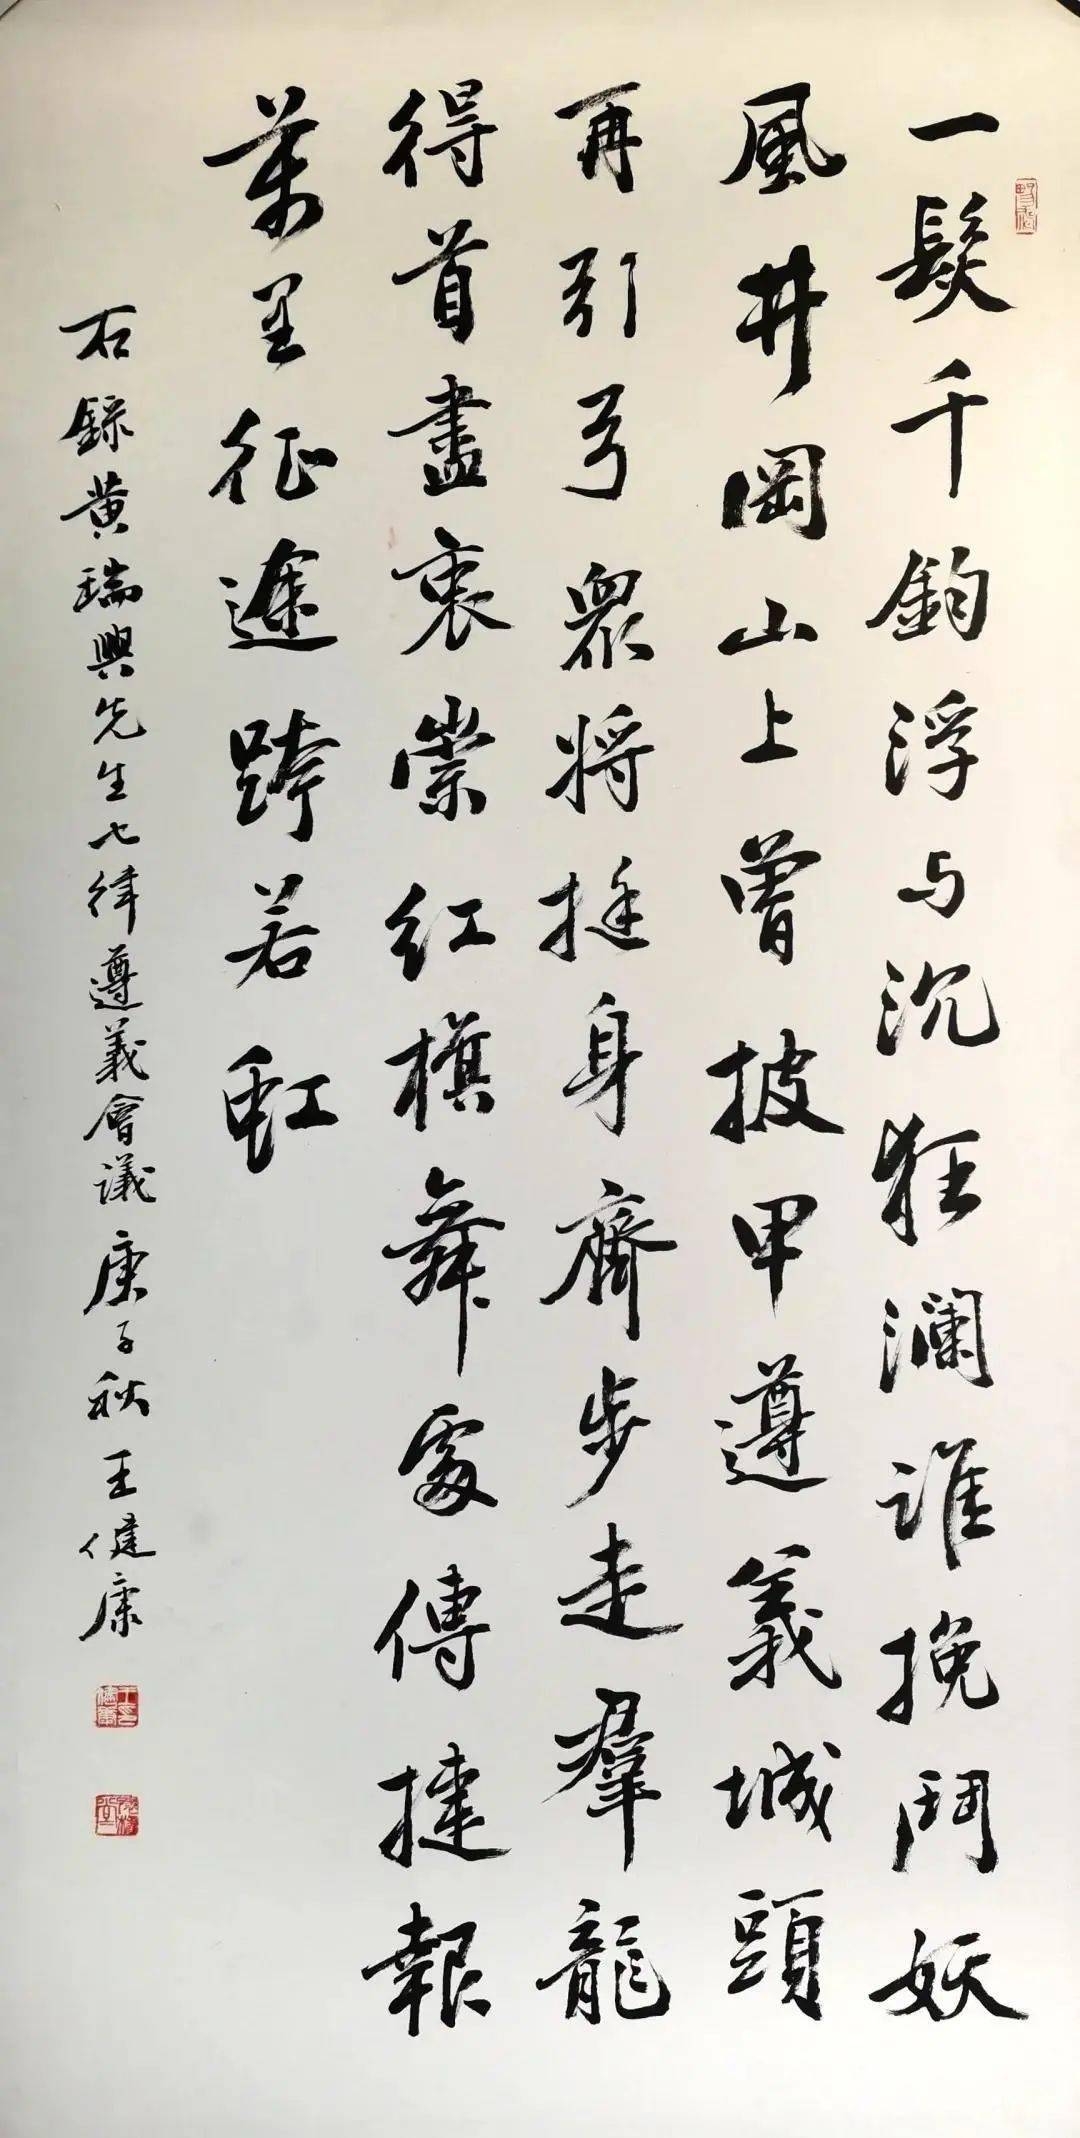 一髮千鈞浮与沉狂澜谁挽鬥妖
風井岡山上曾披甲遵義城頭
再引弓眾将挺身齊步走羣龍
得首盡衷崇红旗舞處傳捷報
萬里征途跨若虹
右錄黄瑞興先生七律遵義會議庚子秋王健康